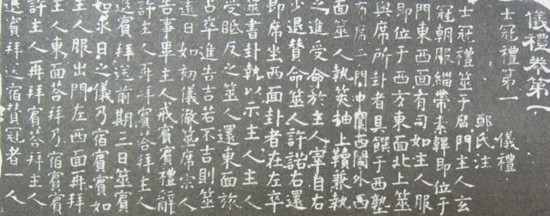 儀禮卷第一
士冠禮第一 儀禮
鄭氏注
士冠禮筮于庿門主人玄
冠朝服緇帶素韠即位于
門東西面有司如主人服
即位于西方東面北上筮
與席所卦者具饌于西塾
布席于門中闑西閾外西
面筮人執筴抽上韇兼執
之進受命於主人宰自右
少退贊命筮人許諾右還
即席坐西面卦者在左卒
筮書卦執以示主人主人
受眡反之筮人還東面旅
占卒進告吉若不吉則筮
遠日如初儀徹筮席宗人
告事畢主人戒賓賓禮辭
許主人再拜賓答拜主人
退賓拜送前期三日筮賓
如求日之儀乃宿賓賓如
主人服出門左西面再拜
主人東面答拜乃宿賓賓
許主人再拜賓答拜主人
退賓拜送宿贊冠者一人